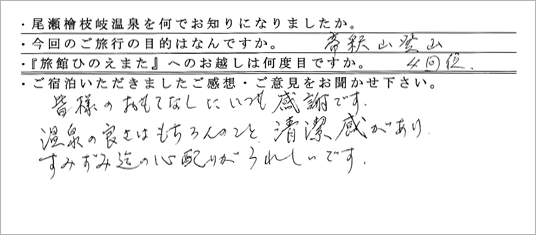 ・尾瀬檜枝岐温泉を何でお知りになりましたか。
・今回のご旅行の目的はなんですか。 帝釈山登山
・『旅館ひのえまた』へのお越しは何度目ですか。 4回位.
・ご宿泊いただきましたご感想・ご意見をお聞かせ下さい。
皆様のおもてなしにいつも感謝です.
温泉の良さはもちろんのこと、清潔感があり
すみずみ迄の心配りがうれしいです.